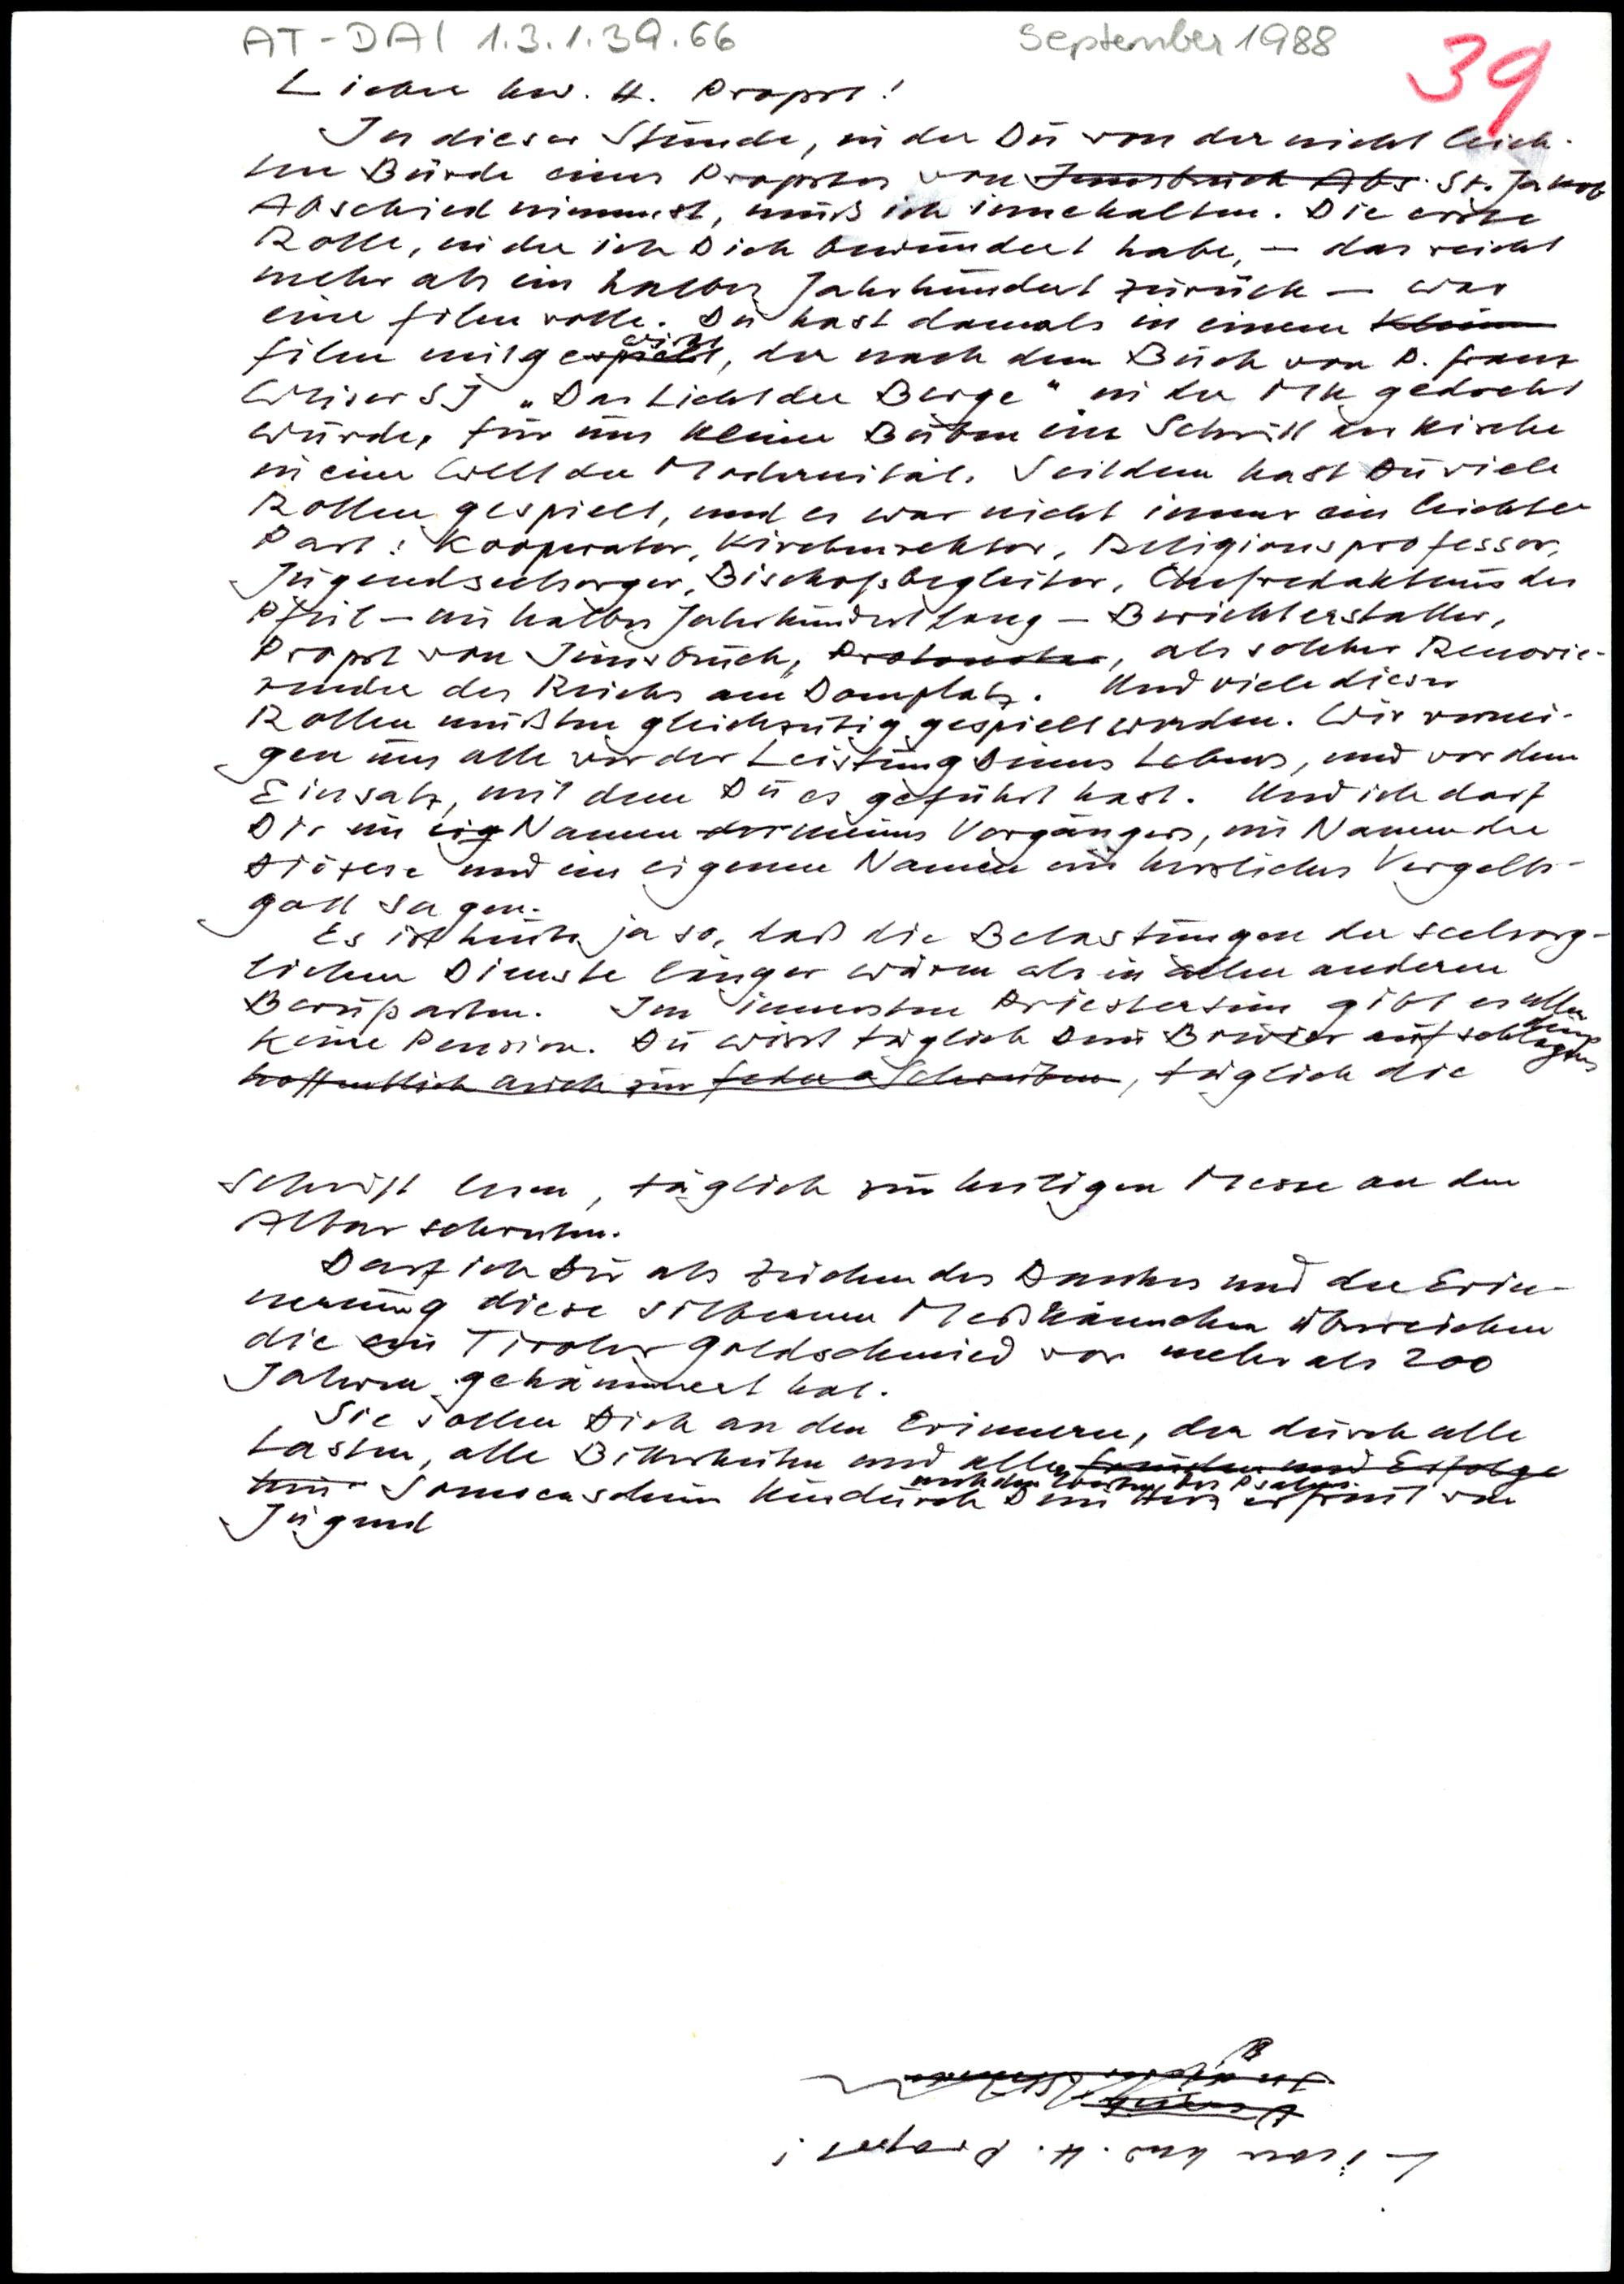 AT-DAI 1.3.1.39.66
September 1988
39
Lieber hw. H. Propst!
In dieser Stunde, in der Du von der nicht leich-
ten Bürde eines Propstes von Innsbruck Abs. St. Jakob
Abschied nimmst, muß ich innehalten. Die erste
Rolle, in der ich Dich bewundert habe, – das reicht
mehr als ein halbes Jahrhundert zurück – war
eine Filmrolle. Du hast damals in einem Klein
wirkt
Film mitgespielt, der nach dem Buch von P. Franz
Weiser SJ „Das Licht der Berge" in der MK gedreht
wurde, für uns kleine Buben ein Schritt der Kirche
in eine Welt der Modernität. Seitdem hast Du viele
Rollen gespielt, und es war nicht immer ein leichter
Part: Kooperator, Kirchenrektor, Religionsprofessor,
Jugendseelsorger, Bischofsbegleiter, Chefredakteur des
Pfeil – ein halbes Jahrhundert lang – Berichterstatter,
Propst von Innsbruck, Protonotar, als solcher Renovie-
render des Reichs am Domplatz. Und viele dieser
Rollen mußten gleichzeitig gespielt werden. Wir vernei-
gen uns alle vor der Leistung Deines Lebens, und vor dem
Einsatz, mit dem Du es geführt hast. Und ich darf
Dir im eig Namen der meines Vorgängers, im Namen der
Diözese und im eigenen Namen ein herzliches Vergelts-
gott sagen.
Es ist heute ja so, daß die Belastungen der seelsorg-
lichen Dienste länger währen als in allen anderen
Berufsarten. Im innersten Priestertum gibt es aber
keine Pension. Du wirst täglich Dein Brevier aufschlagen,
hoffentlich auch zur Feder Schreiben, täglich die
Schrift lesen, täglich zur heiligen Messe an den
Altar schreiten.
Darf ich Dir als Zeichen des Dankes und der Erin-
nerung diese silbernen Meßkännchen überreichen
die ein Tiroler Goldschmied vor mehr als 200
Jahren gehämmert hat.
Sie sollen Dich an den Erinnern, der durch alle
Lasten, alle Bitterkeiten und allen Freuden und Erfolge
nach den Worten des Psalms
Sonnenschein hindurch Dein Herz erfreut von
Jugend
Lieber hw. H. Propst!
In dieser Stunde